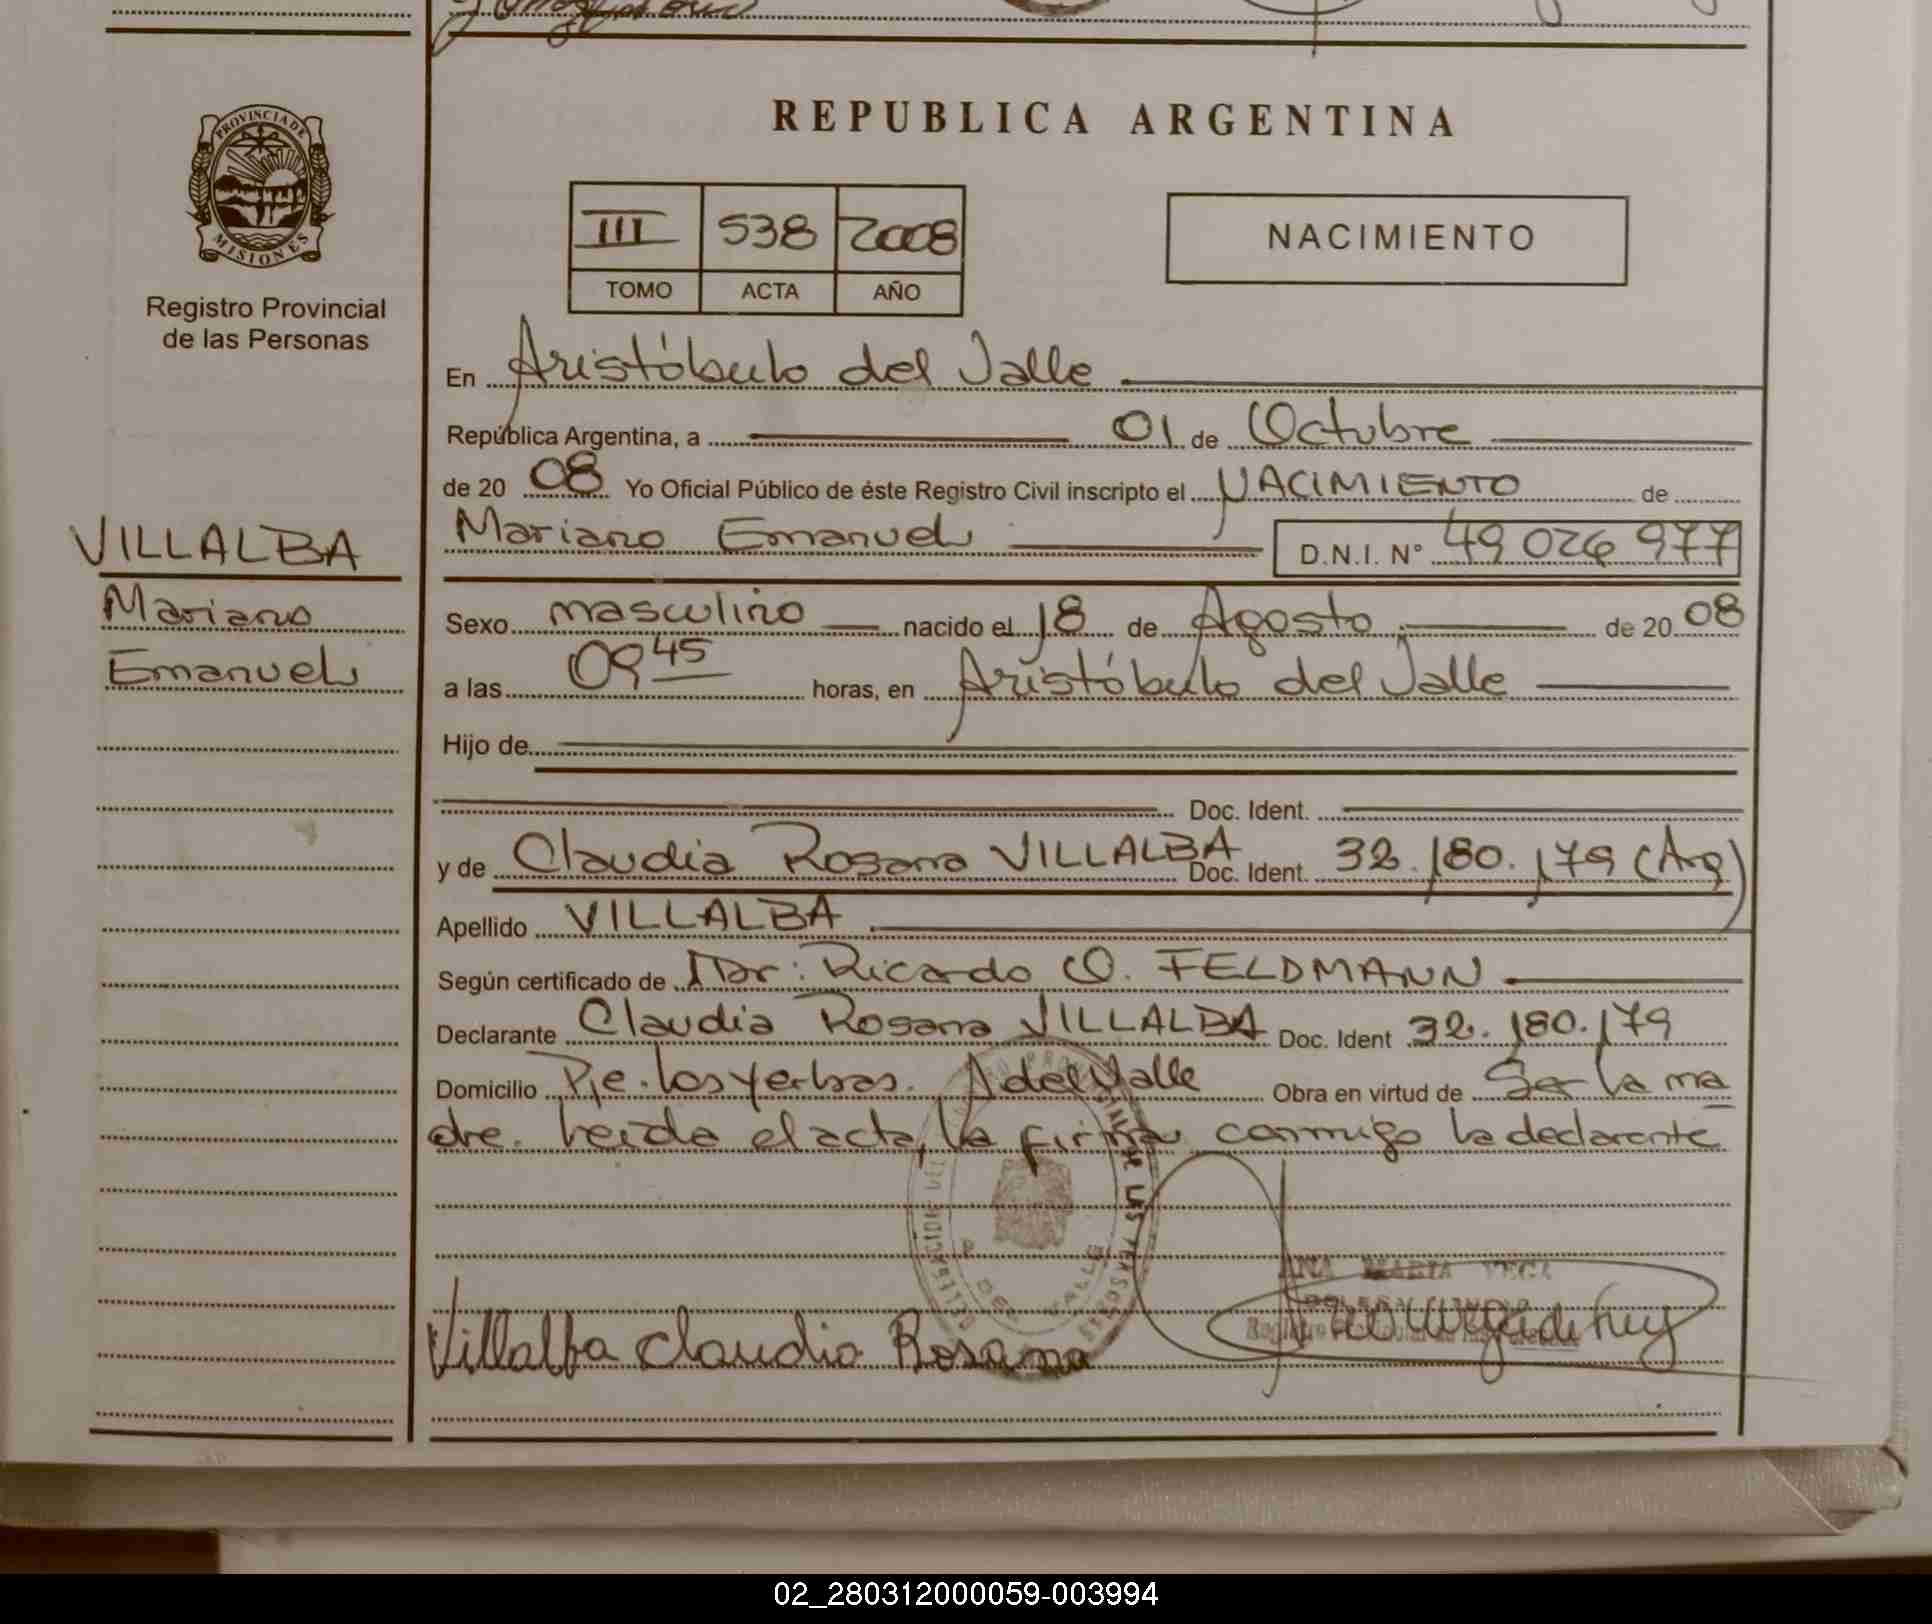 REPUBLICA ARGENTINA
PROVINCIA DE MISIONES
Registro Provincial
de las Personas
III 538 2008
TOMO ACTA AÑO
NACIMIENTO
En Aristóbulo del Valle
República Argentina, a 01 de Octubre
de 20 08 Yo Oficial Público de éste Registro Civil inscripto el NACIMIENTO de
Mariano Emanuel D.N.I. N° 49 026 977
VILLALBA
Mariano
Emanuel
Sexo masculino nacido el 18 de Agosto de 20 08
a las 09 45 horas, en Aristóbulo del Valle
Hijo de
Doc. Ident.
y de Claudia Rosana VILLALBA Doc. Ident. 32.180.179 (Arg)
Apellido VILLALBA
Según certificado de Dr: Ricardo O. FELDMANN
Declarante Claudia Rosana VILLALBA Doc. Ident 32.180.179
Domicilio Pje. Los yerbas. A del Valle Obra en virtud de Ser la ma
dre. Leída el acta, la firma conmigo la declarante
DEL VALLE
ANA MARIA VEGA
Villalba Claudia Rosana
02_280312000059-003994